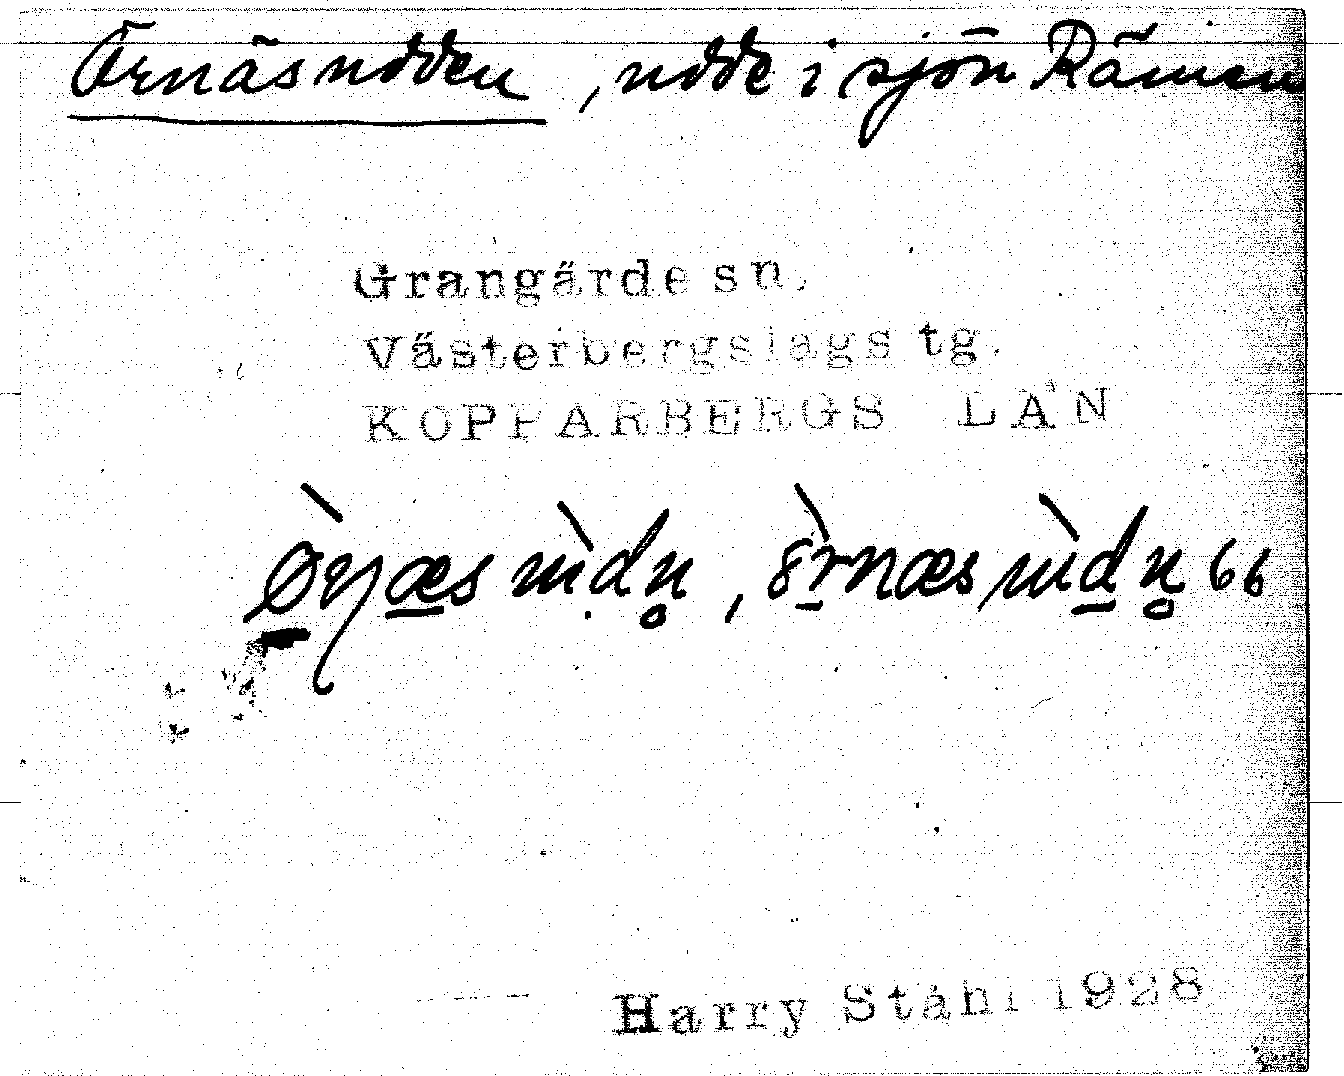 Örnäsudden, udde i sjön Rämen
Grangärde sn.
Västerbergslags tg.
KOPPARBERGS LÄN
66
Harry Ståhl 1928